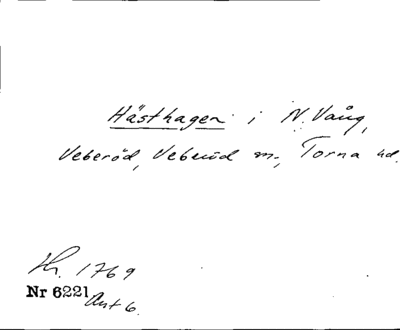 Hästhagen i N. Vång,
Veberöd, Veberöd sn., Torna hd.
Kr. 1769
Nr 6221 Akt 6.